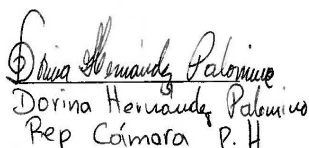 Dorina Hernández Palomino
Dorina Hernández Palomino
Rep Cámara P.H